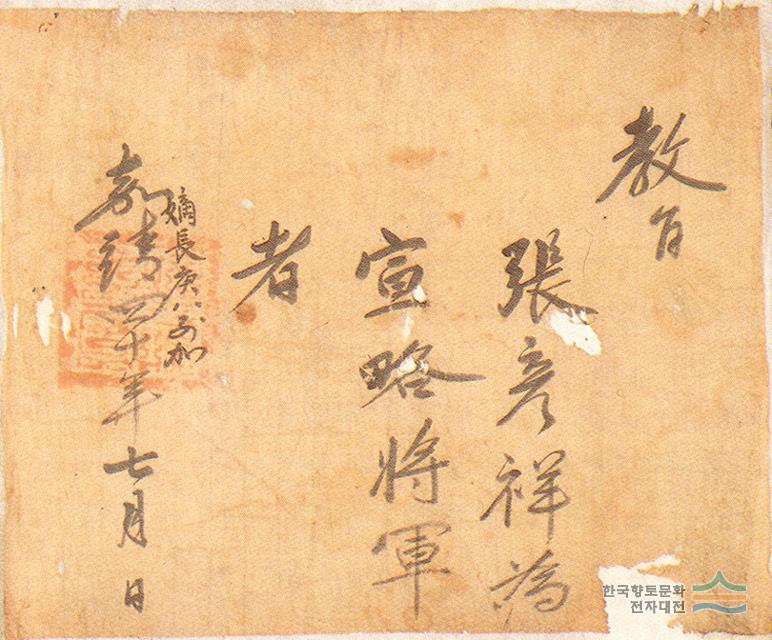 教旨
張彦祥為
宣略將軍
者
嘉靖四十年七月 日
嫡長庚八別加
한국향토문화
전자대전